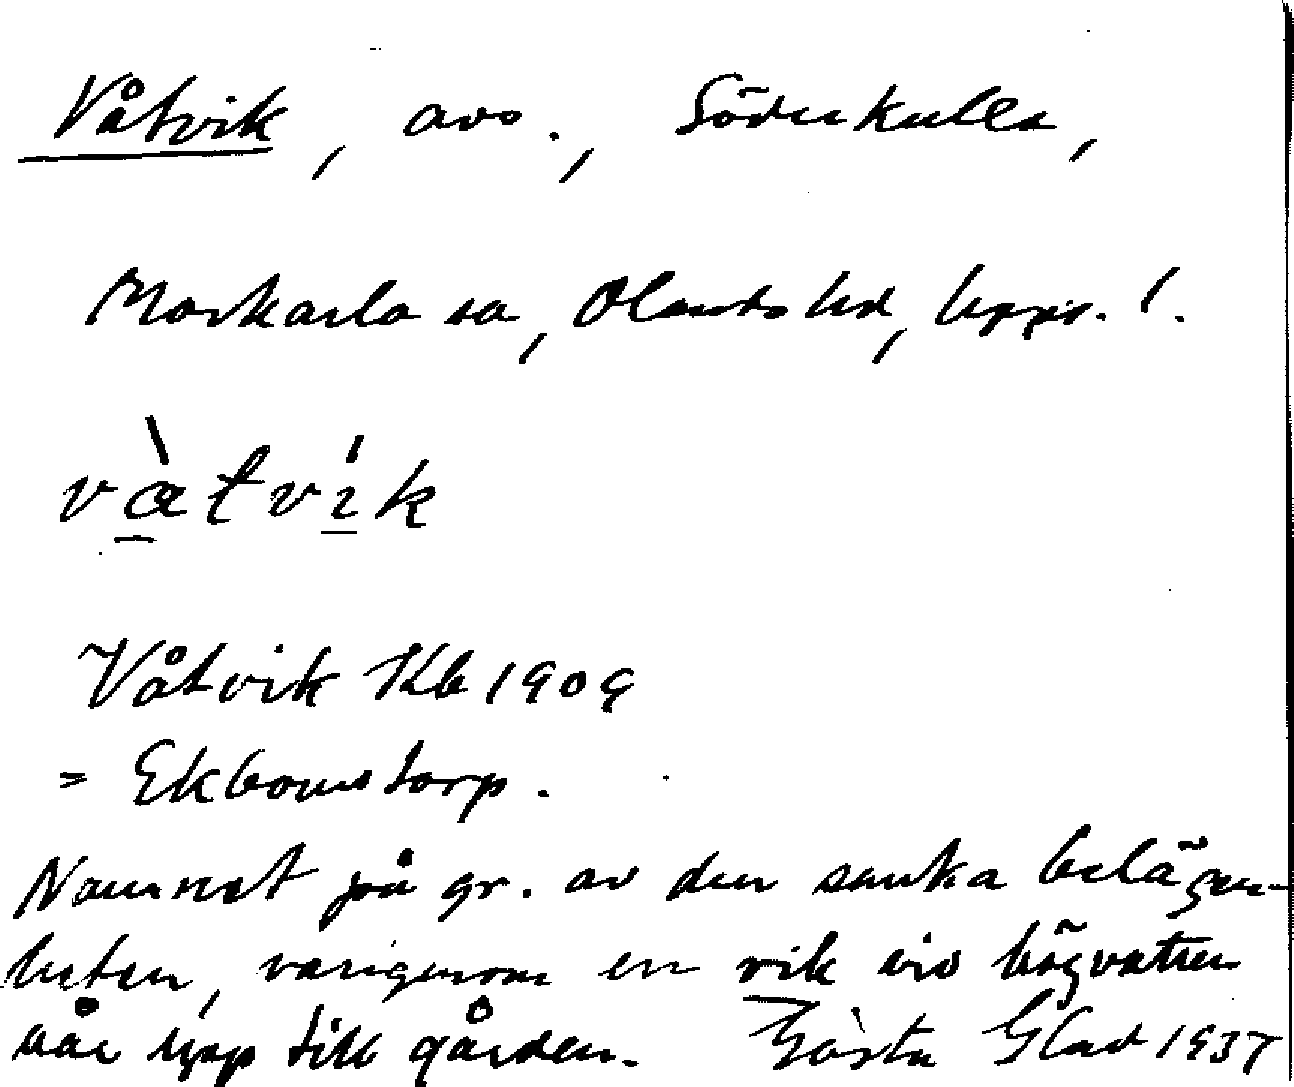 Våtvik, avs., Söderkulla,
Morkarla sn, Olands hd, Upps. l.
vàtvík
Våtvik Kb 1909
= Ekbomstorp.
Namnet på gr. av den sanka belägen-
heten, varigenom en vik vid högvatten
når upp till gården. Gösta Glad 1937